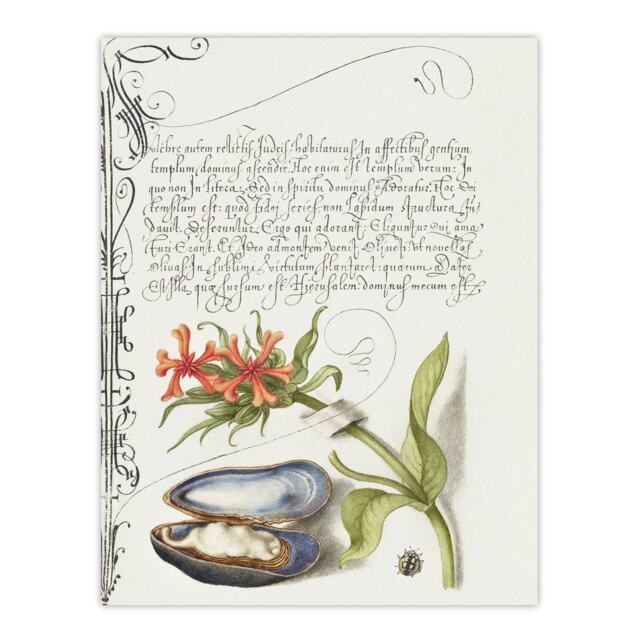 Celebre autem relictis Judeis habitaturus In affectibus gentium
templum dominus ascendit. Hoc enim est templum verum: In
quo non In litera: Sed in spiritu dominus Adoratur. Hoc Dei
templum est: quod fidei series non lapidum structura fun
davit. Deseruntur Ergo qui oderant: Eliguntur qui ama
turi Erant. Et Ideo ad montem venit Oliveti: vt novellas
Olivas In sublimi virtutum plantaret: quarum Mater
Est Illa, quæ sursum est Hierusalem: dominus mecum est